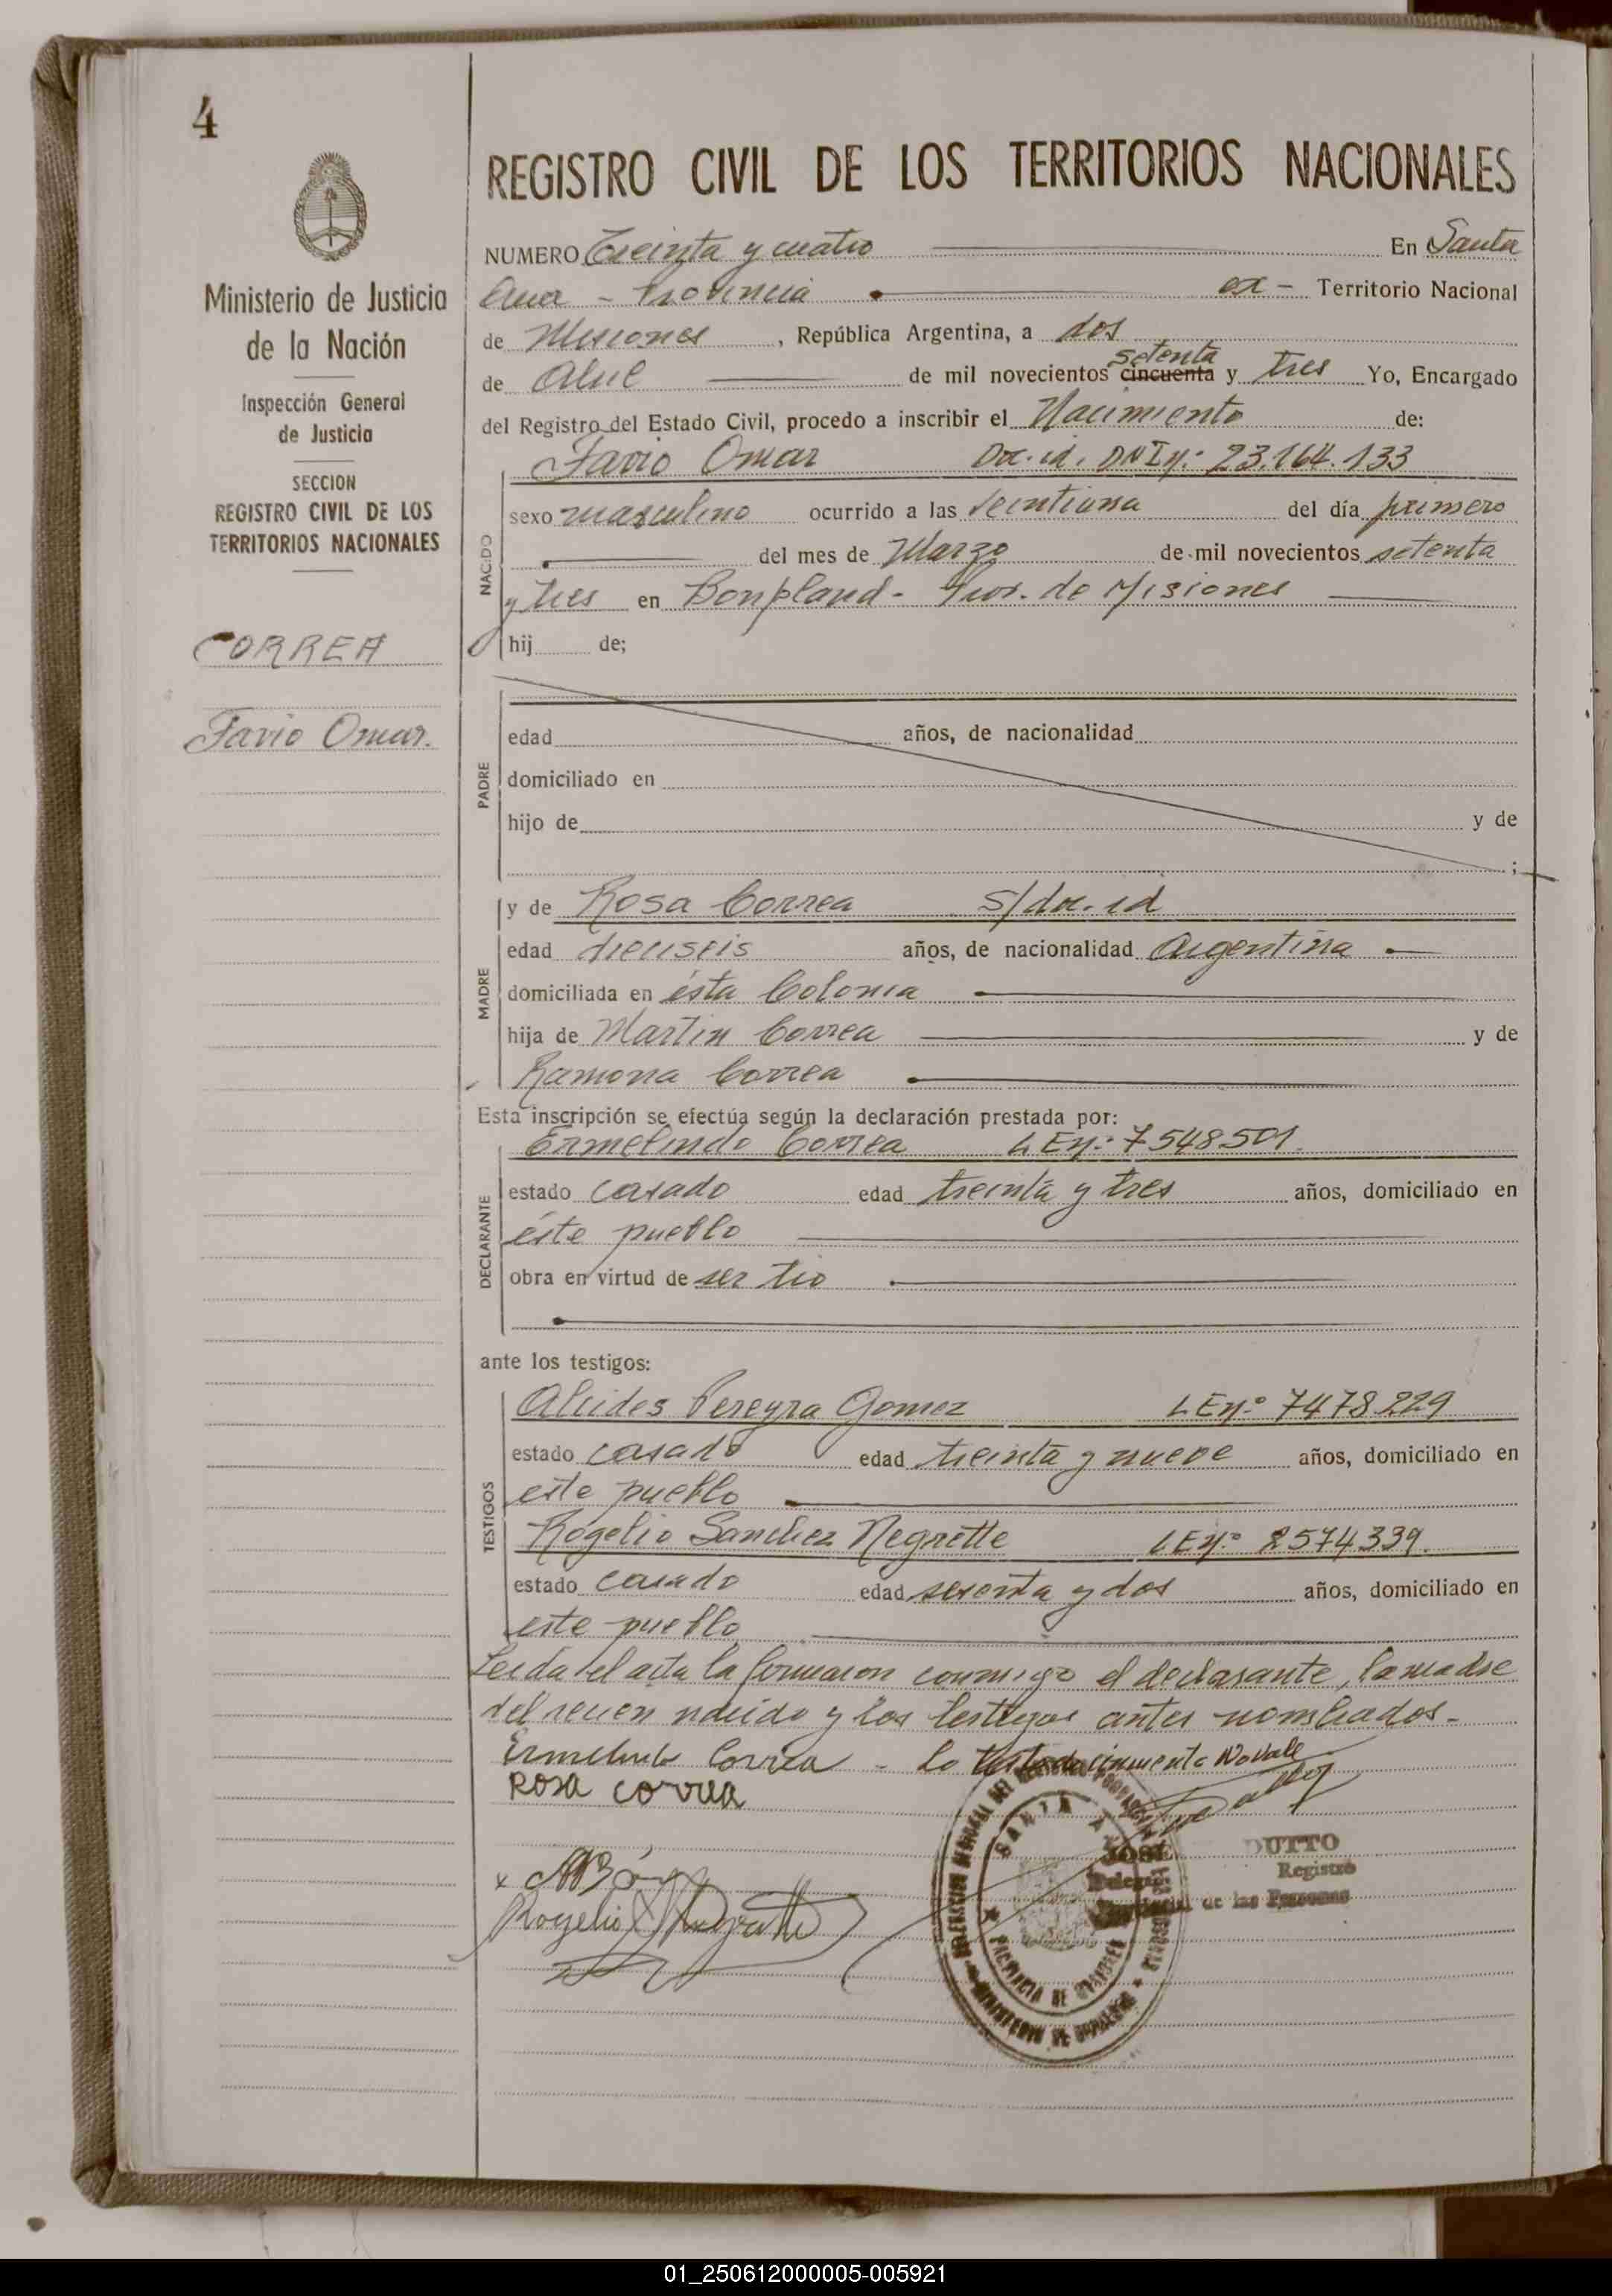 4
REGISTRO CIVIL DE LOS TERRITORIOS NACIONALES
Ministerio de Justicia
de la Nación
Inspección General
de Justicia
SECCION
REGISTRO CIVIL DE LOS
TERRITORIOS NACIONALES
CORREA
Favio Omar.
NUMERO Treinta y cuatro En Santa
Ana - Provincia ex - Territorio Nacional
de Misiones, República Argentina, a dos
setenta
de Abril de mil novecientos cincuenta y tres Yo, Encargado
del Registro del Estado Civil, procedo a inscribir el Nacimiento de:
Favio Omar Doc. id. DNI nº: 23.164.133
NACIDO
sexo masculino ocurrido a las veintiuna del día primero
del mes de Marzo de mil novecientos setenta
y tres en Bonpland - Prov. de Misiones
hij de;
PADRE
edad años, de nacionalidad
domiciliado en
hijo de y de
;
MADRE
y de Rosa Correa s/doc. id
edad dieciseis años, de nacionalidad Argentina
domiciliada en ésta Colonia
hija de Martin Correa y de
Ramona Correa
Esta inscripción se efectúa según la declaración prestada por:
DECLARANTE
Ermelindo Correa L E nº: 7548501.
estado casado edad treinta y tres años, domiciliado en
éste pueblo
obra en virtud de ser tio
ante los testigos:
TESTIGOS
Alcides Pereyra Gomez L E nº 7478229
estado casado edad treinta y nueve años, domiciliado en
este pueblo
Rogelio Sanchez Negrette L E nº 2574339.
estado casado edad sesenta y dos años, domiciliado en
este pueblo
Leida el acta la firmaron conmigo el declarante, la madre
del recien nacido y los testigos antes nombrados.-
Ermelindo Correa - Lo testado cincuenta No vale
Rosa Correa
Rogelio S Negrette
SANTA A
JOSE DUTTO
Registro
Provincial de las Personas
PROVINCIA DE MISIONES
MINISTERIO DE GOBIERNO
01_250612000005-005921